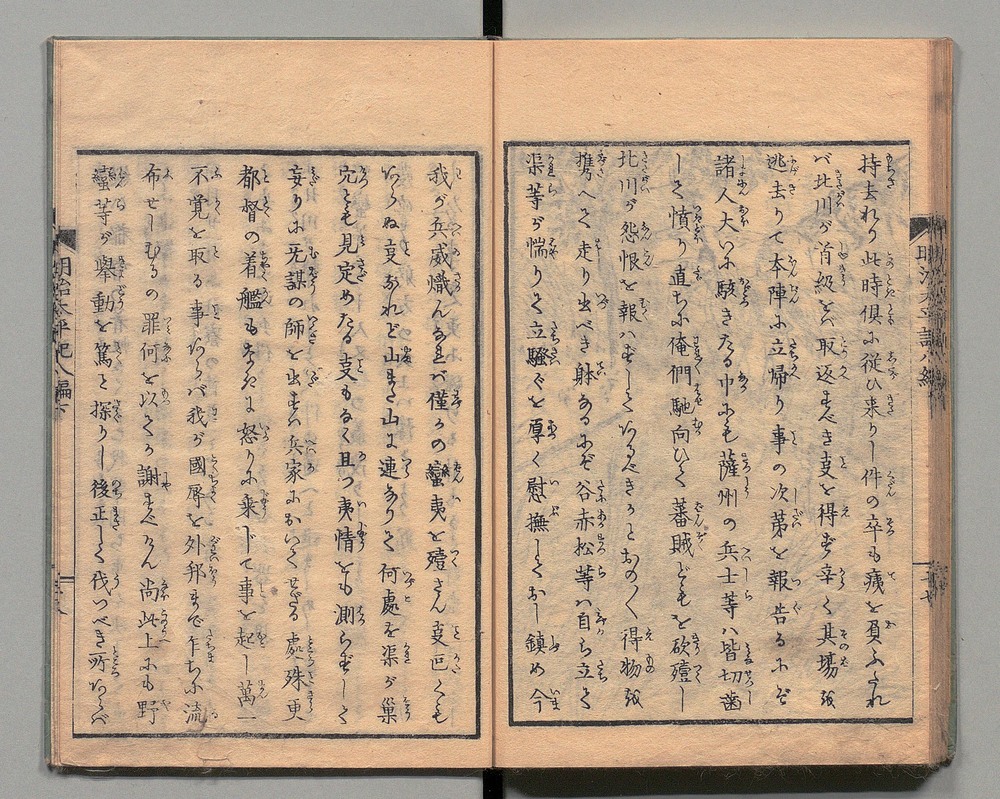 持去れり此時倶に従ひ来りし件の卒も痍を負ふたれ
バ北川が首級をバ取返すべき㕝を得ず辛く其場を
逃去りて本陣に立帰り事の次第を報告るにぞ
諸人大いに駭きたる中にも薩州の兵士等ハ皆切歯
して憤り直ちに俺們馳向ひて蕃賊どもを斫殪し
北川が怨恨を報ハずしてあるべきかとおの〳〵得物を
携へて走り出べき躰なるにぞ谷赤松等ハ自ら立て
渠等が惴りて立騒ぐを厚く慰撫しておし鎮め今
我が兵威熾んなれバ僅かの蠻夷を殪さん㕝固くも
あらぬ㕝なれど山また山に連なりて何處を渠が巣
穴とも見定めたる㕝もなく且つ夷情をも測らずして
妄りに无謀の師を出すハ兵家において甚る處殊更
都督の着艦もまたずに怒りに乗じて事を起し萬一
不覚を取る事あらバ我が國辱を外邦まで乍ちに流
布せしむるの罪何を以てか謝すべけん尚此上にも野
蠻等が舉動を篤と探りし後正しく伐つべき所あらバ
明治太平記八編
明治太平記八編下